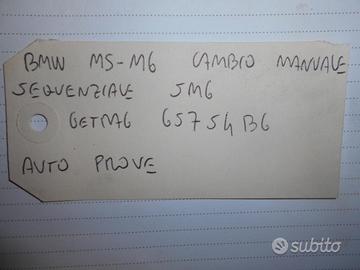 BMW M5-M6 CAMBIO MANUALE
SEQUENZIALE SMG
GETRAG GS7S47BG
AUTO PROVE
subito